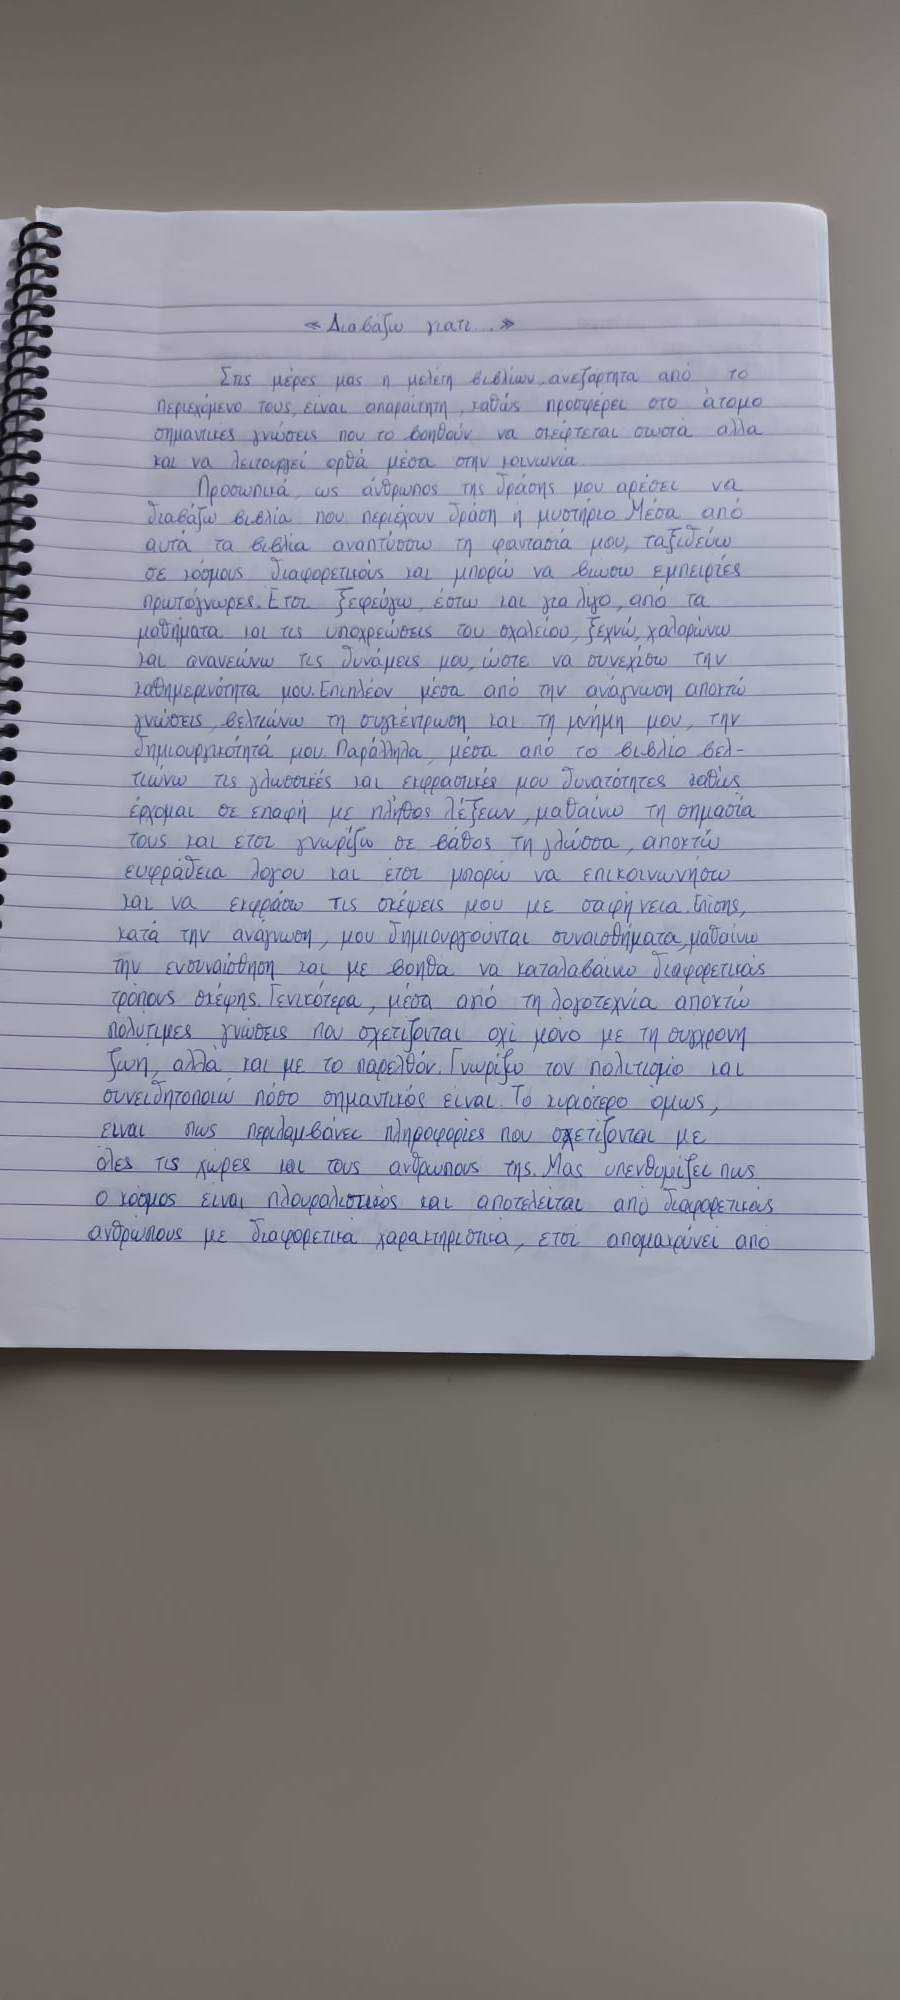 « Διαβάζω γιατι...»
Στις μέρες μας η μελέτη βιβλίων, ανεξάρτητα από το
περιεχόμενο τους, είναι απαραίτητη, καθώς προσφέρει στο άτομο
σημαντικες γνώσεις που το βοηθούν να σκέφτεται σωστά αλλα
και να λειτουργεί ορθά μέσα στην κοινωνία.
Προσωπικά, ως άνθρωπος της δράσης μου αρέσει να
διαβάζω βιβλία που περιέχουν δράση ή μυστήριο. Μέσα από
αυτά τα βιβλία αναπτύσσω τη φαντασία μου, ταξιδεύω
σε κόσμους διαφορετικούς και μπορώ να βιωσω εμπειρίες
πρωτόγνωρες. Ετσι ξεφεύγω, έστω και για λίγο, από τα
μαθήματα και τις υποχρεώσεις του σχολείου, ξεχνώ, χαλαρώνω
και ανανεώνω τις δυνάμεις μου, ώστε να συνεχίσω την
καθημερινότητα μου. Επιπλέον μέσα από την ανάγνωση αποκτώ
γνώσεις, βελτιώνω τη συγκέντρωση και τη μνήμη μου, την
δημιουργικότητά μου. Παράλληλα, μέσα από το βιβλίο βελ-
τιώνω τις γλωσσικές και εκφραστικές μου δυνατότητες καθώς
έρχομαι σε επαφή με πλήθος λέξεων, μαθαίνω τη σημασία
τους και ετσι γνωρίζω σε βάθος τη γλώσσα, αποκτώ
ευφράδεια λογου και έτσι μπορώ να επικοινωνήσω
και να εκφράσω τις σκέψεις μου με σαφήνεια. Επίσης,
κατά την ανάγνωση, μου δημιουργούνται συναισθήματα, μαθαίνω
την ενσυναίσθηση και με βοηθα να καταλαβαίνω διαφορετικούς
τρόπους σκέψης. Γενικότερα, μέσα από τη λογοτεχνία αποκτώ
πολύτιμες γνώσεις που σχετίζονται οχι μόνο με τη συγχρονη
ζωή, αλλά και με το παρελθόν. Γνωρίζω τον πολιτισμό και
συνειδητοποιώ πόσο σημαντικός είναι. Το κυριότερο όμως,
ειναι πως περιλαμβάνει πληροφορίες που σχετίζονται με
όλες τις χώρες και τους ανθρωπους της. Μας υπενθυμίζει πως
ο κόσμος είναι πλουραλιστικός και αποτελείται από διαφορετικούς
ανθρώπους με διαφορετικά χαρακτηριστικά, ετσι απομακρύνει από